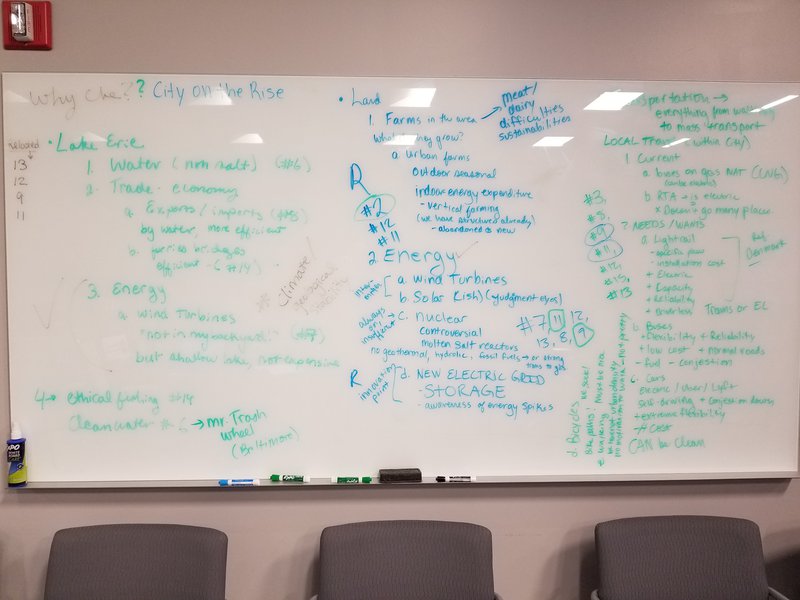 Why Cle?? City on the Rise
related
13
12
9
11
• Lake Erie
1. Water (non salt) (#6)
2. Trade - economy
a. Exports / imports
by water, more efficient
b. ferries bridges
efficient - (#14)
3. Energy
a. wind Turbines
"not in my backyard!" (#7)
but shallow lake, not expensive
4→ ethical fishing #14
Clean water #6 → Mr. Trash
wheel
(Baltimore)
Climate/
geological
stability
• Land
1. Farms in the area →
meat/
dairy
difficulties
sustainabilities
What they grow?
a. Urban farms
outdoor seasonal
indoor energy expenditure
- vertical farming
(we have structures already)
- abandoned is new
R
#2
#12
#11
2. Energy
a. Wind Turbines
b. Solar (ish) (judgment eyes)
c. nuclear
controversial
molten salt reactors
#7, 11, 12,
13, 8, 9
no geothermal, hydrolic, fossil fuels → or strong
trans to gas
always
on/
R innovation
point
d. NEW ELECTRIC GRID
- STORAGE
- awareness of energy spikes
everything from walking
to mass transport
LOCAL (within City)
1. Current
a. buses on gas NAT (CNG)
b. RTA → is electric
x Doesn't go many places
#3,
#8,
#9
#11,
#12,
#13
? NEEDS/WANTS
a. Lightrail
- specific
- installation cost
+ Electric
+ Capacity
+ Reliability
+ Driverless
Denmark
Trams or EL
b. Buses
+ flexibility + Reliability
+ low cost + normal roads
- fuel - conjestion
c. Cars
Electric / Uber / Lyft
Self-Driving + Conjestion down
+ extreme flexibility
- # Cost
CAN be Clean
d. Bicycles
Bike paths!
EXPO